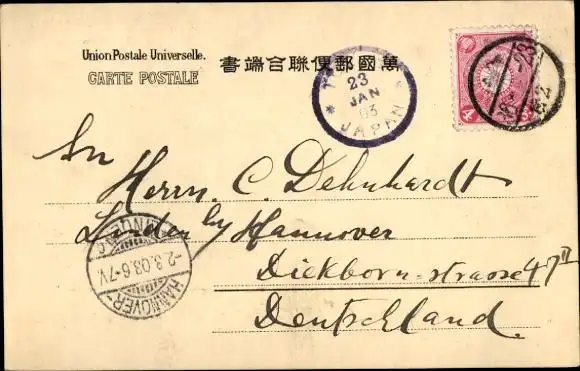 Union Postale Universelle.
CARTE POSTALE
書端合聯便郵國萬
23
JAN
03
JAPAN
4
23
An
Herrn. C. Dehnhardt
Linden by Hannover
Dickborn-strasse 47 II
Deutschland.
HANNOVER-
-2.3.03.6-7V.